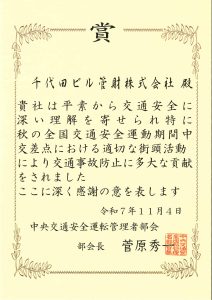 賞
千代田ビル管財株式会社 殿
貴社は平素から交通安全に
深い理解を寄せられ特に
秋の全国交通安全運動期間中
交差点における適切な街頭活動
により交通事故防止に多大な貢献
をされました
ここに深く感謝の意を表します
令和7年11月4日
中央交通安全運転管理者部会
部会長 菅原秀一